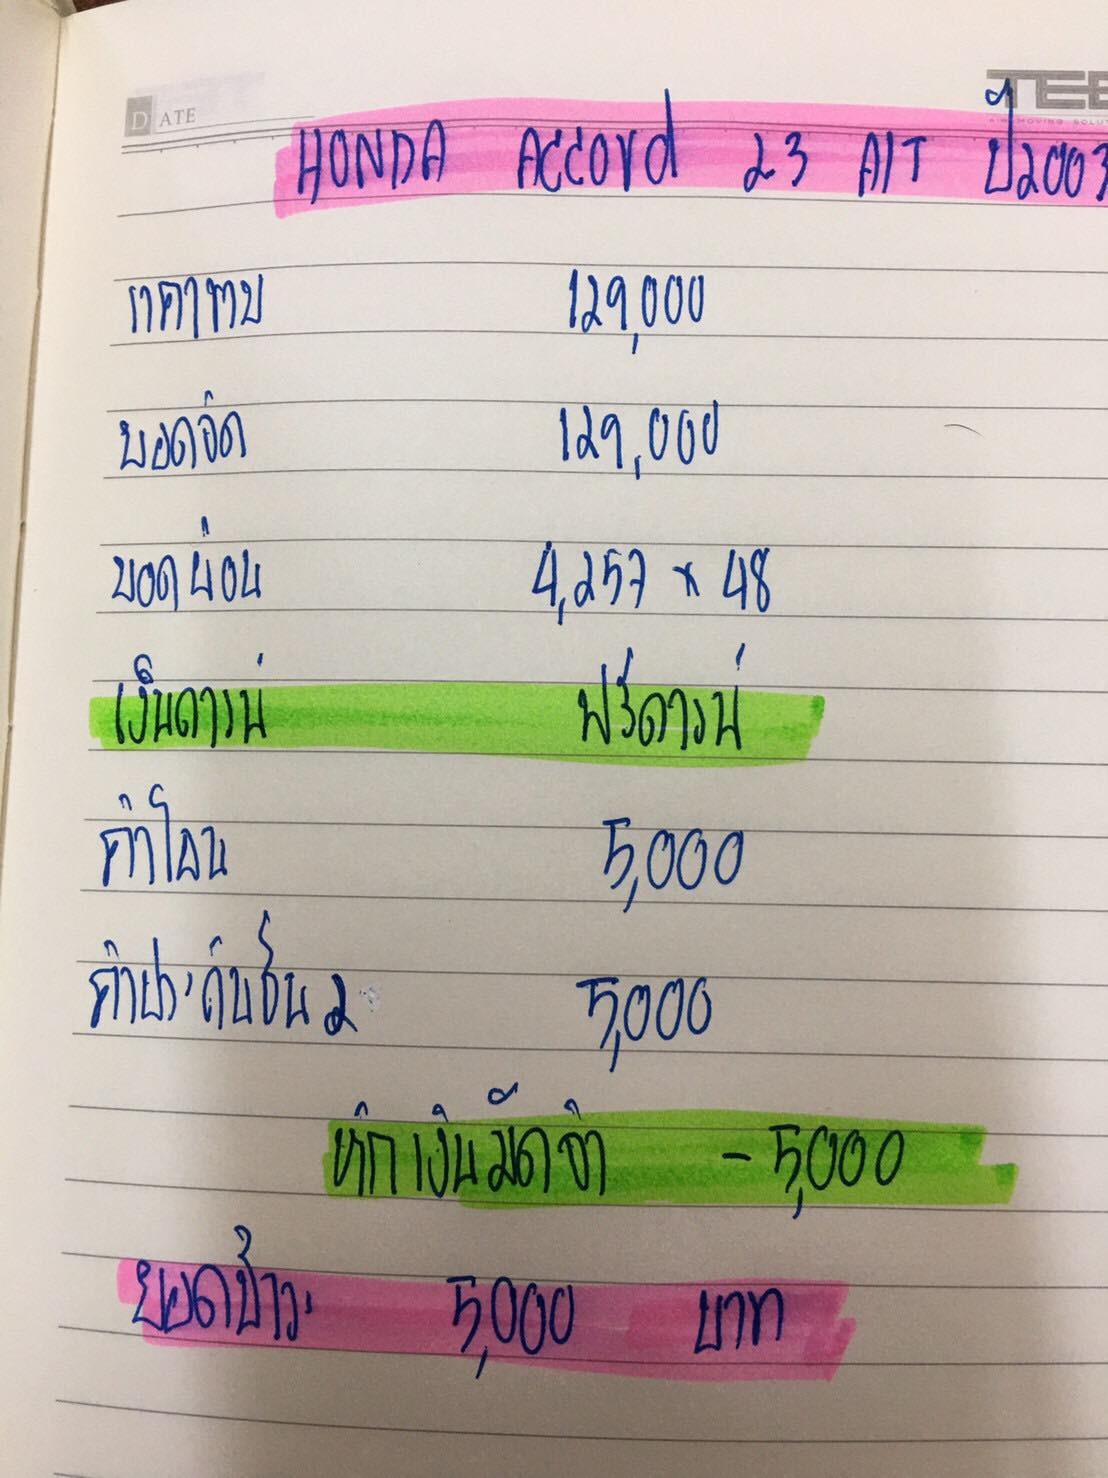 DATE
TEE
HONDA Accord 23 A/T ปี2003
ราคารถ 129,000
ยอดจัด 129,000
ยอดผ่อน 4,257 x 48
เงินดาวน์ ฟรีดาวน์
ค่าโอน 5,000
ค่าประกันชั้น 2 5,000
หักเงินมัดจำ - 5,000
ยอดชำระ 5,000 บาท